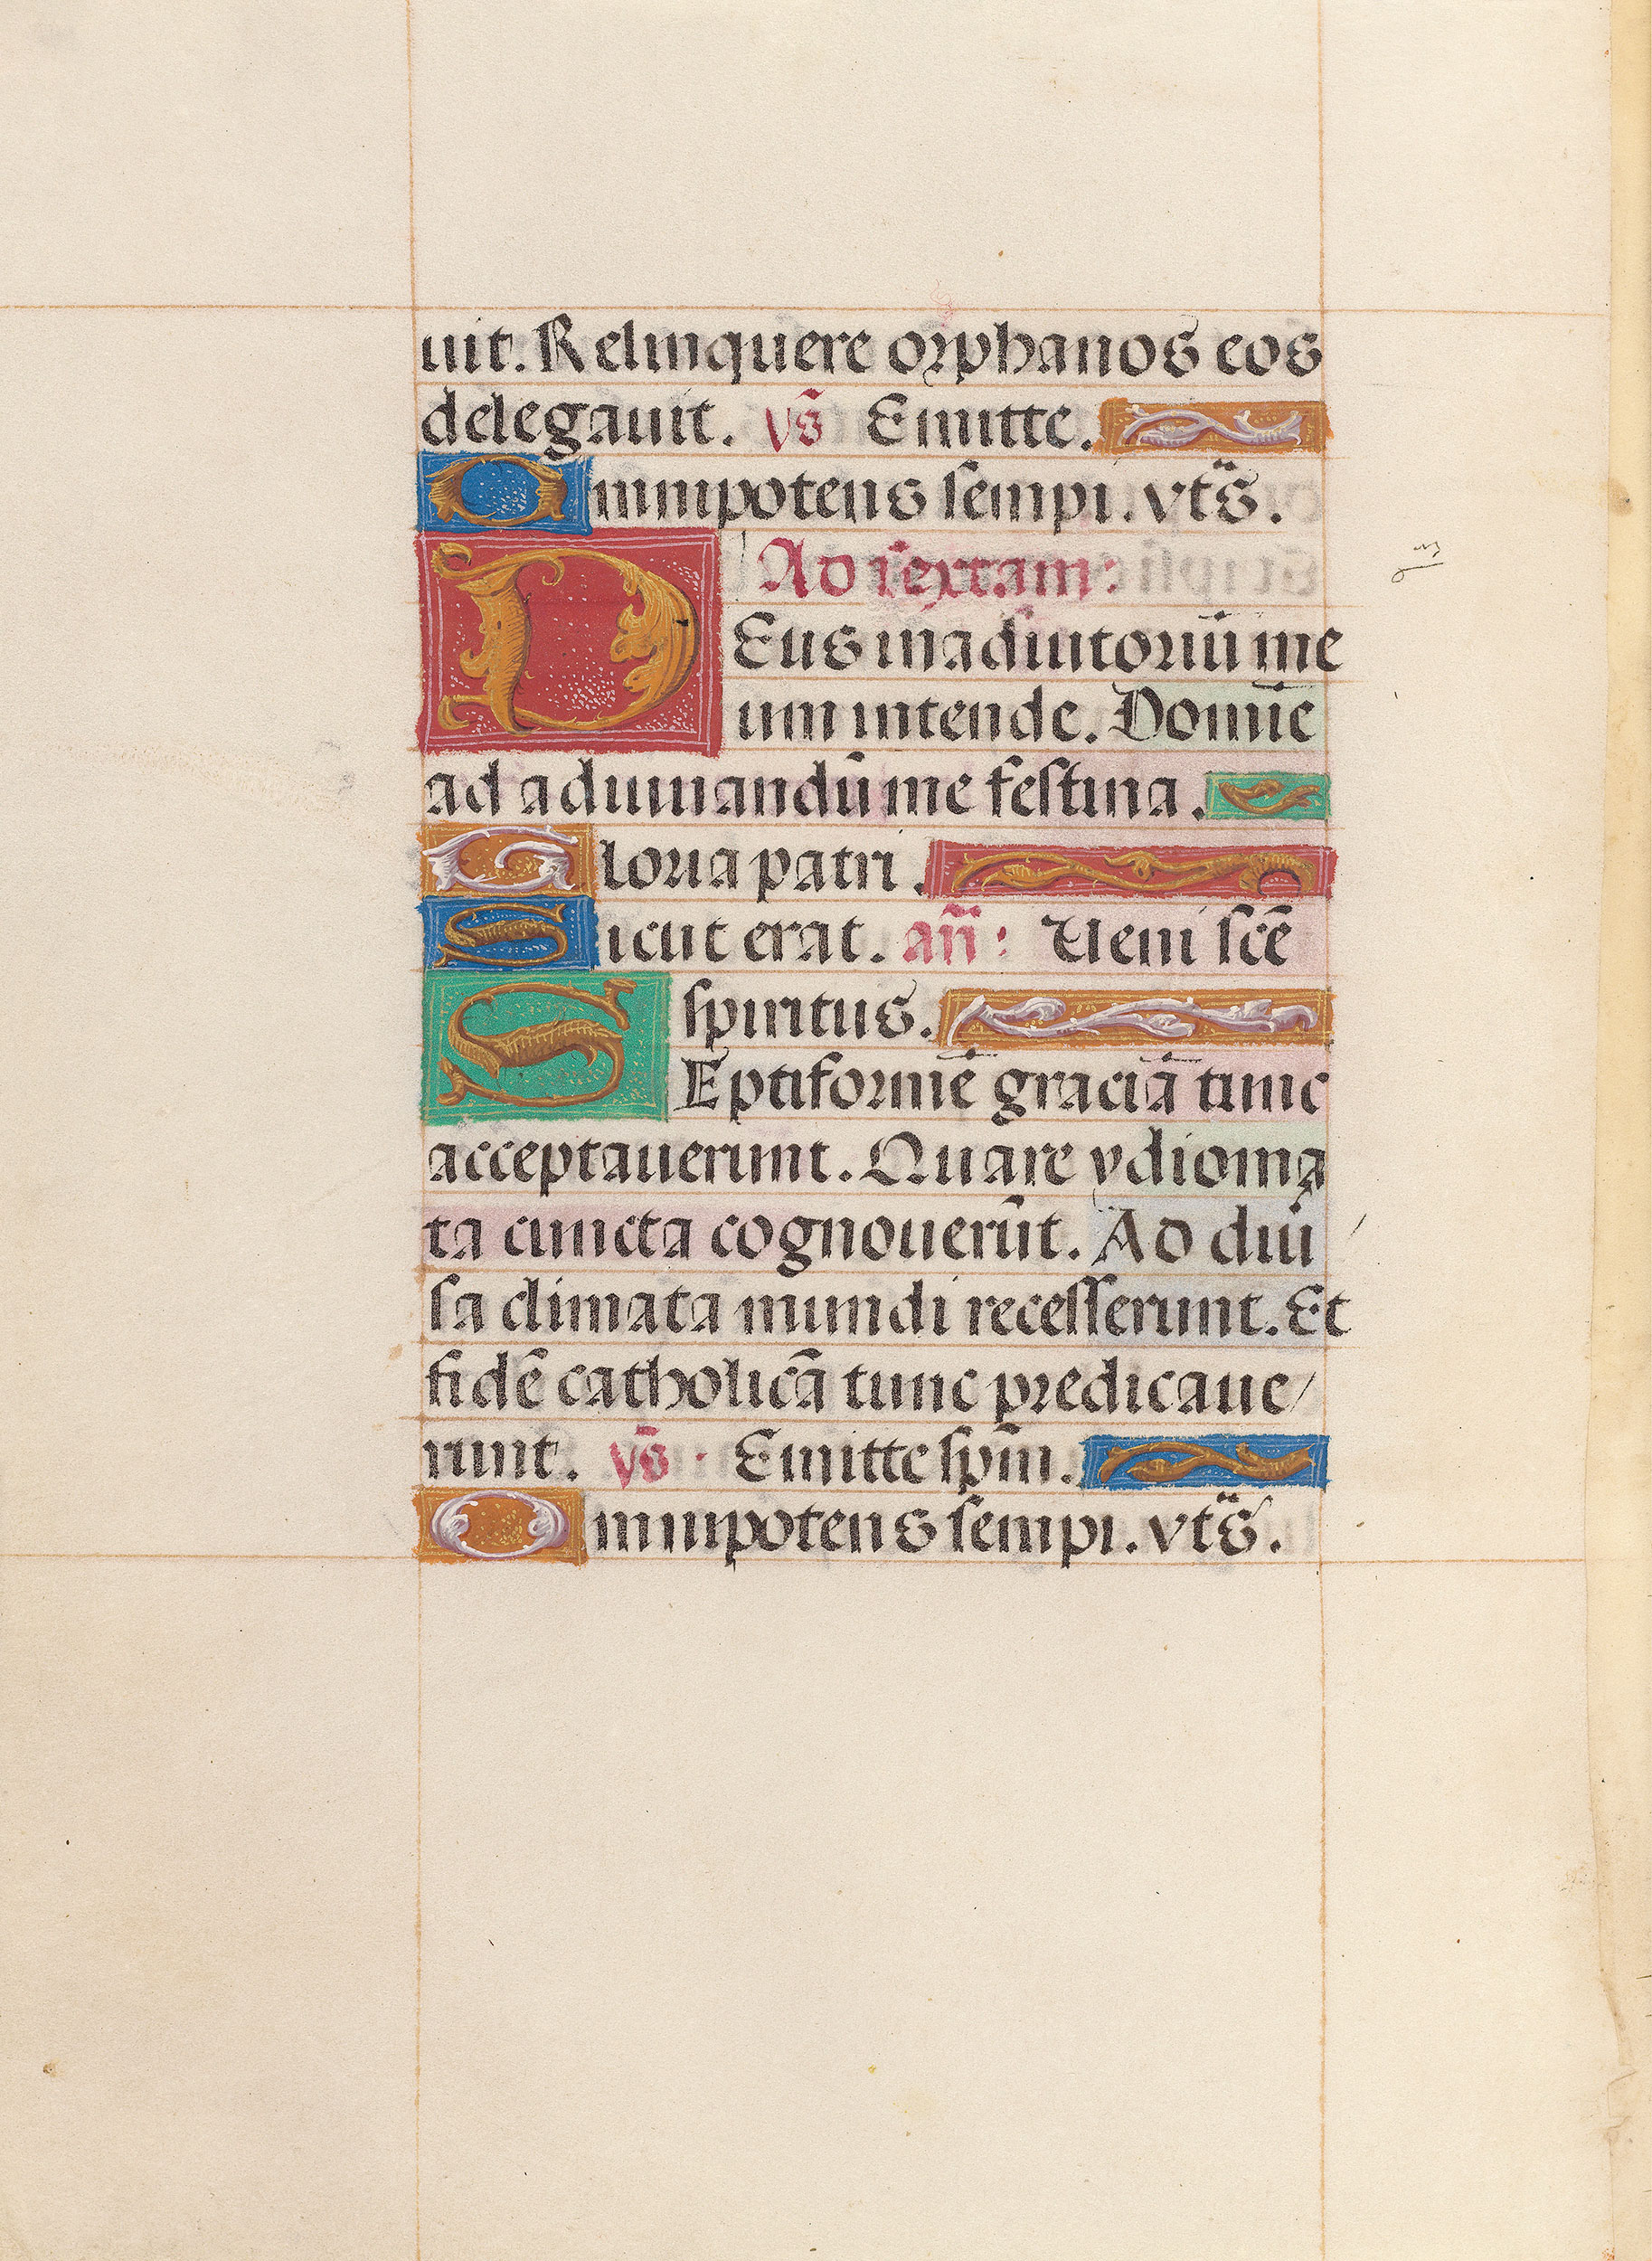 uit. Relinquere orphanos eos
delegauit. vs̄ Emitte.
Omnipotens sempi. vt̄s.
Ad sextam:
DEus in adiutoriū me
um intende. Domīe
ad adiuuandū me festina.
Gloria patri.
Sicut erat. an̄: Ueni scē
spiritus.
SEptiformē graciā tunc
acceptauerunt. Quare ydioma
ta cuncta cognouerūt. Ad diu
sa climata mundi recesserunt. Et
fidē catholicā tunc predicaue/
runt. vs̄. Emitte spm̄.
Omnipotens sempi. vt̄s.